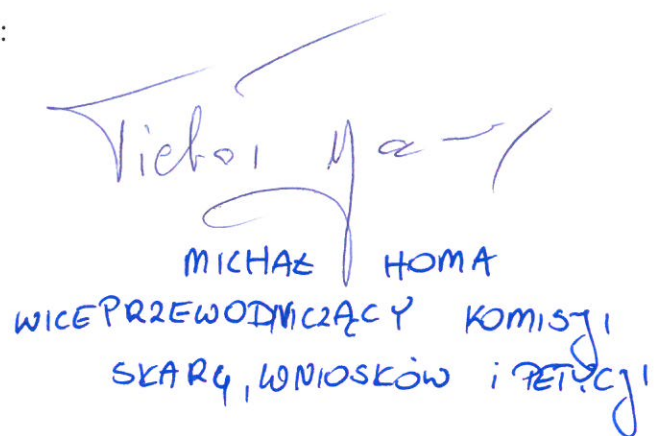 :
MICHAŁ HOMA
WICEPRZEWODNICZĄCY KOMISJI
SKARG, WNIOSKÓW i PETYCJI